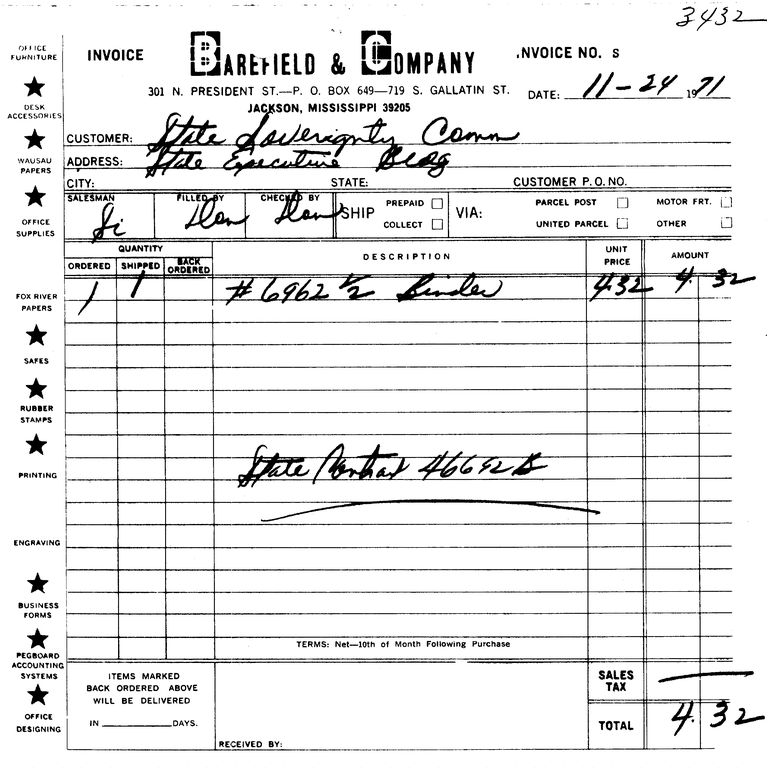 3432
INVOICE BAREFIELD & COMPANY INVOICE NO. S
301 N. PRESIDENT ST.—P. O. BOX 649—719 S. GALLATIN ST.
JACKSON, MISSISSIPPI 39205
DATE: 11-24 1971
CUSTOMER: State Sovereignty Comm
ADDRESS: State Executive Bldg
CITY: STATE: CUSTOMER P.O. NO.
SALESMAN FILLED BY CHECKED BY
Don Don
SHIP PREPAID ☐ COLLECT ☐
VIA: PARCEL POST ☐ MOTOR FRT. ☐
UNITED PARCEL ☐ OTHER ☐
QUANTITY DESCRIPTION UNIT PRICE AMOUNT
ORDERED SHIPPED BACK ORDERED
1 1 # 6962 1/2 Binder 4.32 4.32
State Contract 46692
TERMS: Net—10th of Month Following Purchase
ITEMS MARKED
BACK ORDERED ABOVE
WILL BE DELIVERED
IN DAYS.
RECEIVED BY:
SALES TAX
TOTAL 4.32
OFFICE FURNITURE
DESK ACCESSORIES
WAUSAU PAPERS
OFFICE SUPPLIES
FOX RIVER PAPERS
SAFES
RUBBER STAMPS
PRINTING
ENGRAVING
BUSINESS FORMS
PEGBOARD ACCOUNTING SYSTEMS
OFFICE DESIGNING